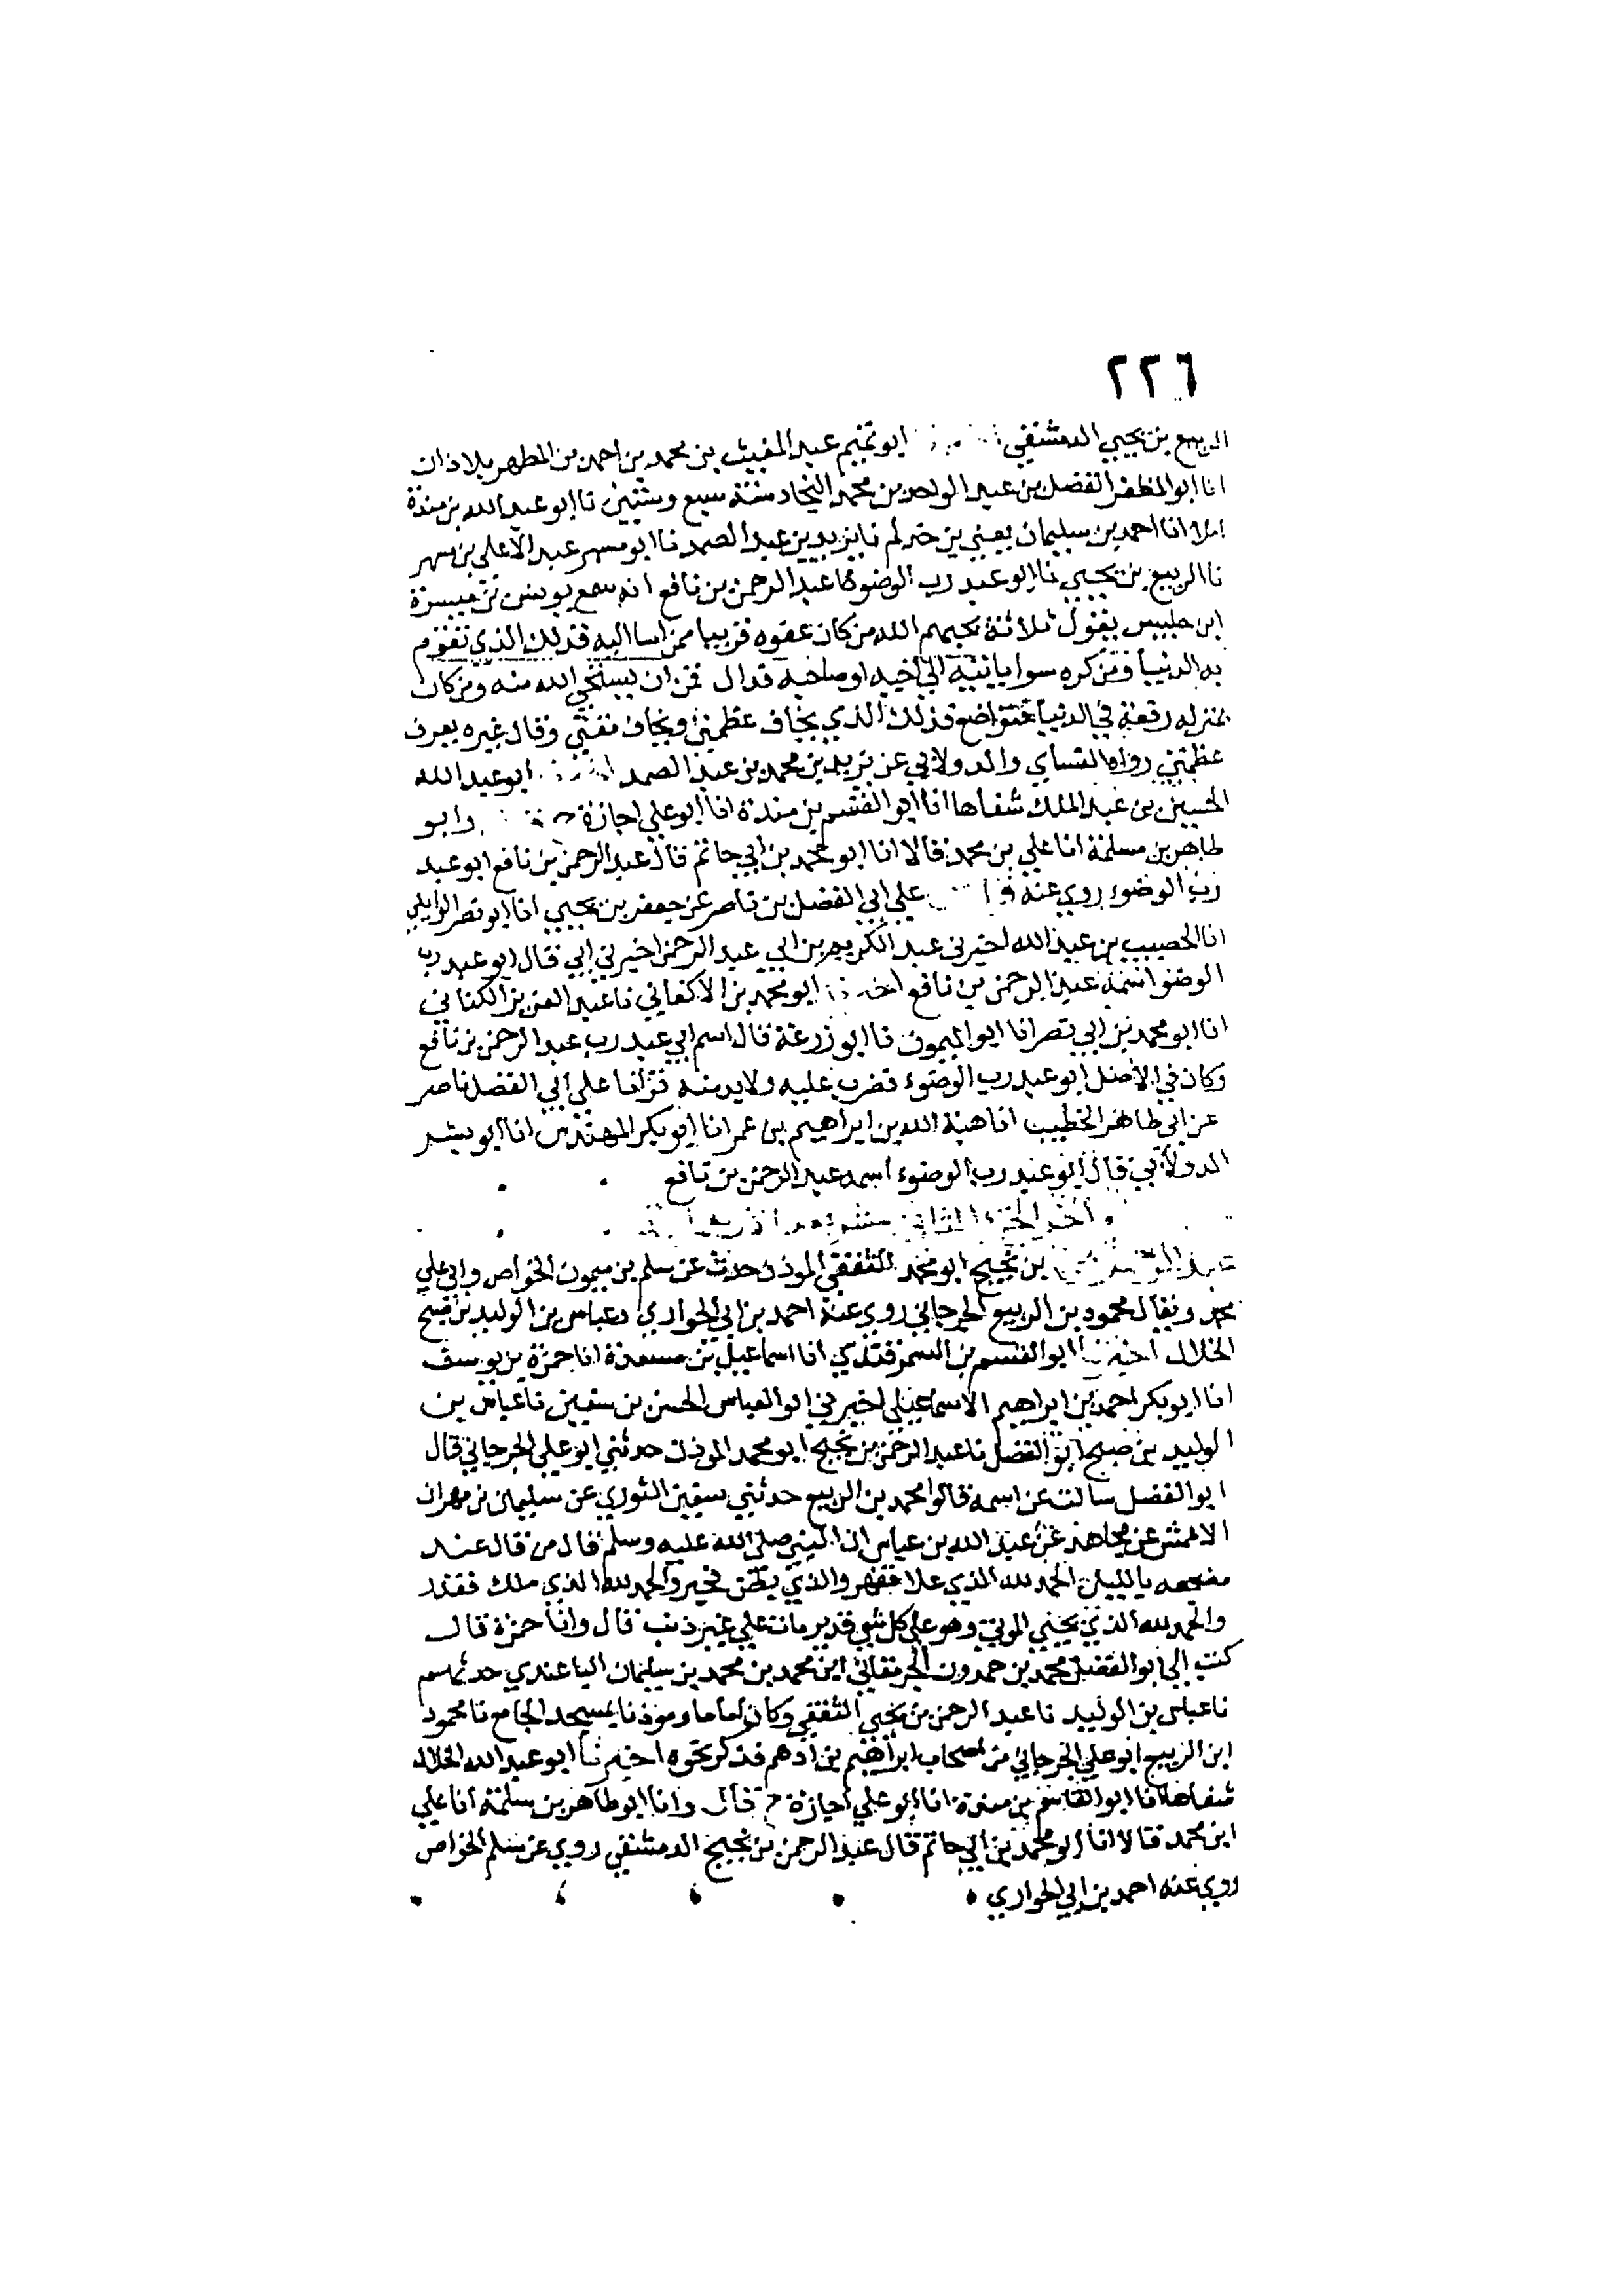 ٢٢٦
الربيع بن يحيى الدمشقي ابو تميم عبد المغيث بن محمد بن احمد بن المطهر بلاذان
انا ابو المظفر الفضل بن عبد الواحد بن محمد النجاد سنة سبع وستين نا ابو عبد الله بن مندة
املا انا احمد بن سليمان يعني بن حذلم نا يزيد بن عبد الصمد نا ابو مسهر عبد الاعلى بن مسهر
نا الربيع بن يحيى نا ابو عبد رب الوضو عبد الرحمن بن نافع انه سمع يونس بن ميسرة
ابن حلبس يقول ثلاثة يحبهم الله من كان عفوه قريبا ممن اسا اليه فذلك الذي تقوم
به الدنيا ومن كره سوا ياتيه الى اخيه او صاحبه قمن ان يستحي الله منه ومن كان
بمنزله رفعة في الدنيا فتواضع فذلك الذي يخاف عظمتي ويخاف مقتي وقال غيره يعرف
عظمتي رواه النساي والدولابي عن يزيد بن محمد بن عبد الصمد ابو عبد الله
الحسين بن عبد الملك شفاها انا ابو القسم بن مندة انا ابو علي اجازة وابو
طاهر بن مسلمة انا علي بن محمد قالا انا ابو محمد بن ابي حاتم قال عبد الرحمن بن نافع ابو عبد
رب الوضوء روى عنه علي ابي الفضل بن ناصر عن جعفر بن يحيى انا ابو نصر الوايلي
انا الخصيب بن عبد الله اخبرني عبد الكريم بن ابي عبد الرحمن اخبرني ابي قال ابو عبد رب
الوضوا اسمه عبد الرحمن بن نافع ابو محمد بن الاكفاني نا عبد العزيز الكتاني
انا ابو محمد بن ابي نصر انا ابو الميمون نا ابو زرعة قال اسم ابي عبد رب عبد الرحمن بن نافع
وكان في الاصل ابو عبد رب الوضوء فضرب عليه ولابد منه قرانا على ابي الفضل ناصر
عن ابي طاهر الخطيب انا هبة الله بن ابراهيم بن عمر انا ابو بكر المهندس انا ابو بشر
الدولابي قال ابو عبد رب الوضوء اسمه عبد الرحمن بن نافع
اخر الجزء الثاني
بن نجيح ابو محمد الثقفي الموذن حدث عن سلم بن ميمون الخواص وابي علي
محمد ويقال محمود بن الربيع الجرجاني روى عنه احمد بن ابي الحواري وعباس بن الوليد بن صبح
الخلال ابو القسم بن السمرقندي انا اسماعيل بن مسعدة انا حمزة بن يوسف
انا ابو بكر احمد بن ابراهيم الاسماعيلي اخبرني ابو العباس الحسن بن سفين نا عباس بن
الوليد بن صبح ابو الفضل نا عبد الرحمن بن نجيح ابو محمد الموذن حدثني ابو علي الجرجاني قال
ابو الفضل سالت عن اسمه قالوا محمد بن الربيع حدثني سفين الثوري عن سليمان بن مهران
الاعمش عن مجاهد عن عبد الله بن عباس ان النبي صلى الله عليه وسلم قال من قال عند
مضجعه بالليل الحمد لله الذي علا فقهر والذي بطن فخبر والحمد لله الذي ملك فقدر
والحمد لله الذي يحيي الموتى وهو على كل شي قدير مات على غير ذنب قال وانا حمزة قال
كتب الي ابو الفضل محمد بن حمدون ابن محمد بن محمد بن سليمان الباغندي حدثهم
نا عباس بن الوليد نا عبد الرحمن بن يحيى الثقفي وكان اماما وموذنا بمسجد الجامع نا محمود
ابن الربيع ابو علي الجرجاني من اصحاب ابراهيم بن ادهم فذكر نحوه اخبرنا ابو عبد الله الخلال
شفاها انا ابو القاسم بن مندة انا ابو علي اجازة ح قال وانا ابو طاهر بن سلمة انا علي
ابن محمد قالا انا ابو محمد بن ابي حاتم قال عبد الرحمن بن نجيح الدمشقي روى عن سلم الخواص
روى عنه احمد بن ابي الحواري